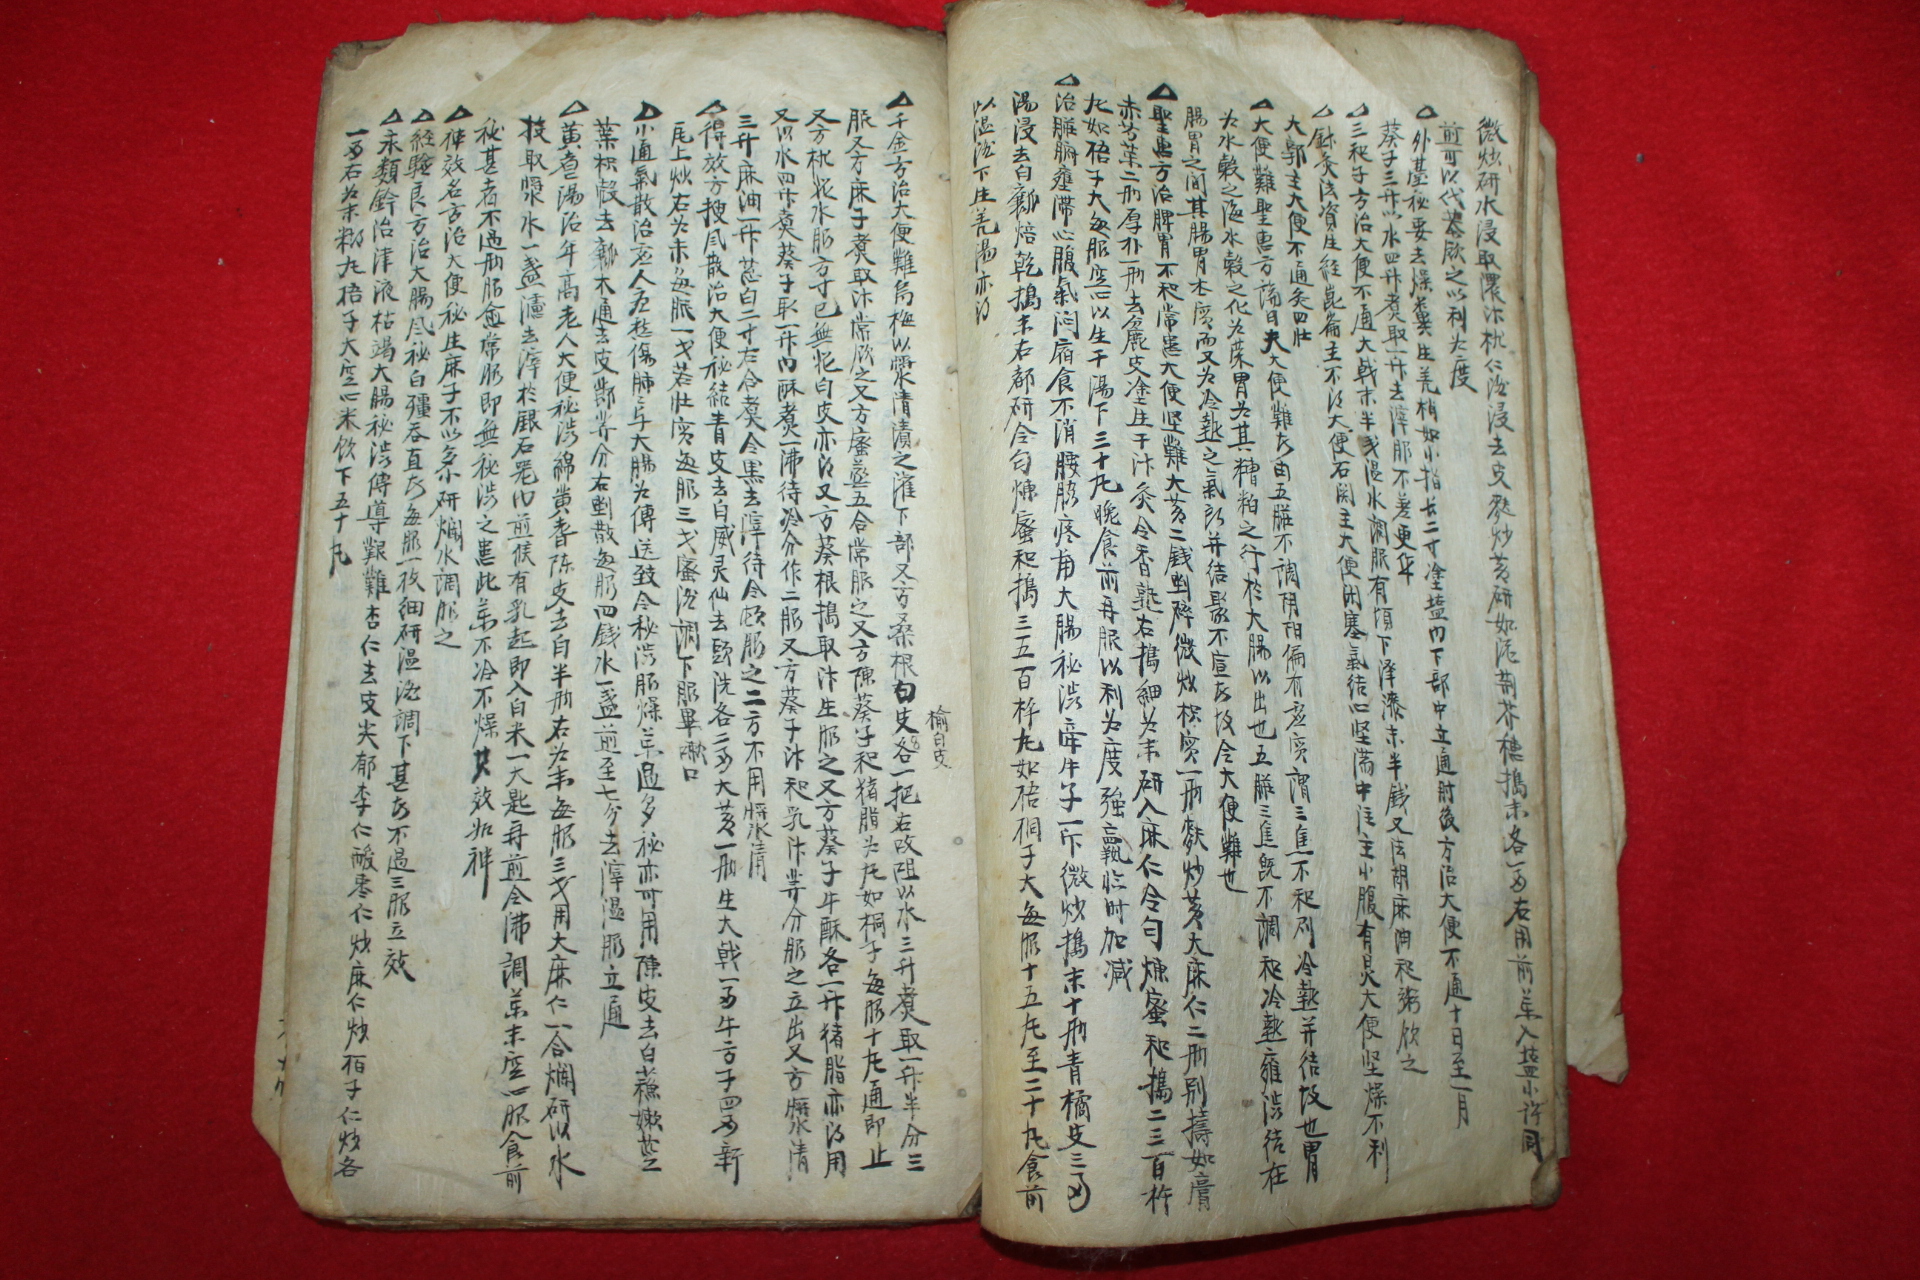 微炒研水浸取濃汁枕仁湯浸去皮麩炒黃研如泥荆芥穗搗末各一両右用前藥入塩小許同
煎可以代茶飲之以利为度
△外臺秘要去燥糞生羌梢如小指长二寸塗塩內下部中立通肘後方治大便不通十日至一月
葵子三升以水四升煮取一升去滓服不差更作
△三和子方治大便不通大戟末半戔温水調服有頃下澤漆末半錢又法胡麻油和粥飲之
△針灸俠資生經崑崙主不得大便石関主大便闭塞氣結心坚滿中注主小腹有炅大便坚燥不利
大郭主大便不通灸四壮
△大便難聖惠方論曰夫大便難者由五臓不調阴阳偏有虛實謂三焦不和則冷熱并结故也胃
为水穀之海水穀之化为荣胃为其糟粕之行於大腸以出也五臓三焦既不調和冷熱壅澁结在
腸胃之间其腸胃本實而又为冷熱之氣所并结聚不宣者故令大便難也
△聖惠方治脾胃不和常患大便坚難大黃二錢剉碎微炒枳實一刃麩炒黃大麻仁二刃别擣如膏
赤芍薬二刃厚朴一刃去麁皮塗生干汁灸令香熟右搗細为末研入麻仁令勻煉蜜和搗二三百杵
九如梧子大每服空心以生干湯下三十九晩食前再服以利为度強羸临时加减
△治臓腑壅滞心腹氣闷宿食不消腰胯疼痛大腸祕澁牽牛子一斤微炒搗末十刃青橘皮三両
湯浸去白瓤焙乾搗末右都研令勻煉蜜和搗三五百杵九如梧桐子大每服十五九至二十九食前
以温酒下生羌湯亦得
△千金方治大便難烏梅以漿清漬之灌下部又方桑根白皮榆白皮各一把右㕮咀以水三升煮取一升半分三
服又方麻子煮取汁常飲之又方蜜蒸五合常服之又方陳葵子和猪脂为九如桐子每服十九通即止
又方桃花水服方寸匕無花白皮亦得又方葵根搗取汁生服之又方葵子牛酥各一升猪脂亦得用
又以水四升煮葵子取一升內酥煮一沸待冷分作二服又方葵子汁和乳汁等分服之立出又方漿水清
三升麻油一升葱白二寸右合煮令黒去滓待令頓服之二方不用漿水清
△得效方搜风散治大便秘結青皮去白威灵仙去頭洗各二両大黃一刃生大戟一両牛旁子四両新
瓦上炒右为末每服一戔若壮實每服三戔蜜湯調下服畢嗽口
△小通氣散治虛人虛愁傷肺與大腸为傳送致令秘澁服燥藥过多秘亦可用陳皮去白蘓嫩莖
葉枳殻去瓤木通去皮等分右剉散每服四錢水一盞煎至七分去滓温服立通
△黃耆湯治年高老人大便秘澁綿黃耆陈皮去白半刃右为末每服三戔用大麻仁一合爛研以水
投取漿水一盞濾去滓於銀石器內煎候有乳起即入白米一大匙再煎令沸調藥末空心服食前
秘甚者不过兩服愈常服即無秘澁之患此药不冷不燥其效如神
△神效名方治大便秘生麻子不以多小研爛水調服之
△經驗良方治大腸风秘白殭吞直者每服一枚細研温酒調下甚者不过三服立效
△永類鈐治津液枯竭大腸秘澁傳導艱難杏仁去皮尖郁李仁酸棗仁炒麻仁炒栢子仁炒各
一両右为末糊九梧子大空心米飲下五十九